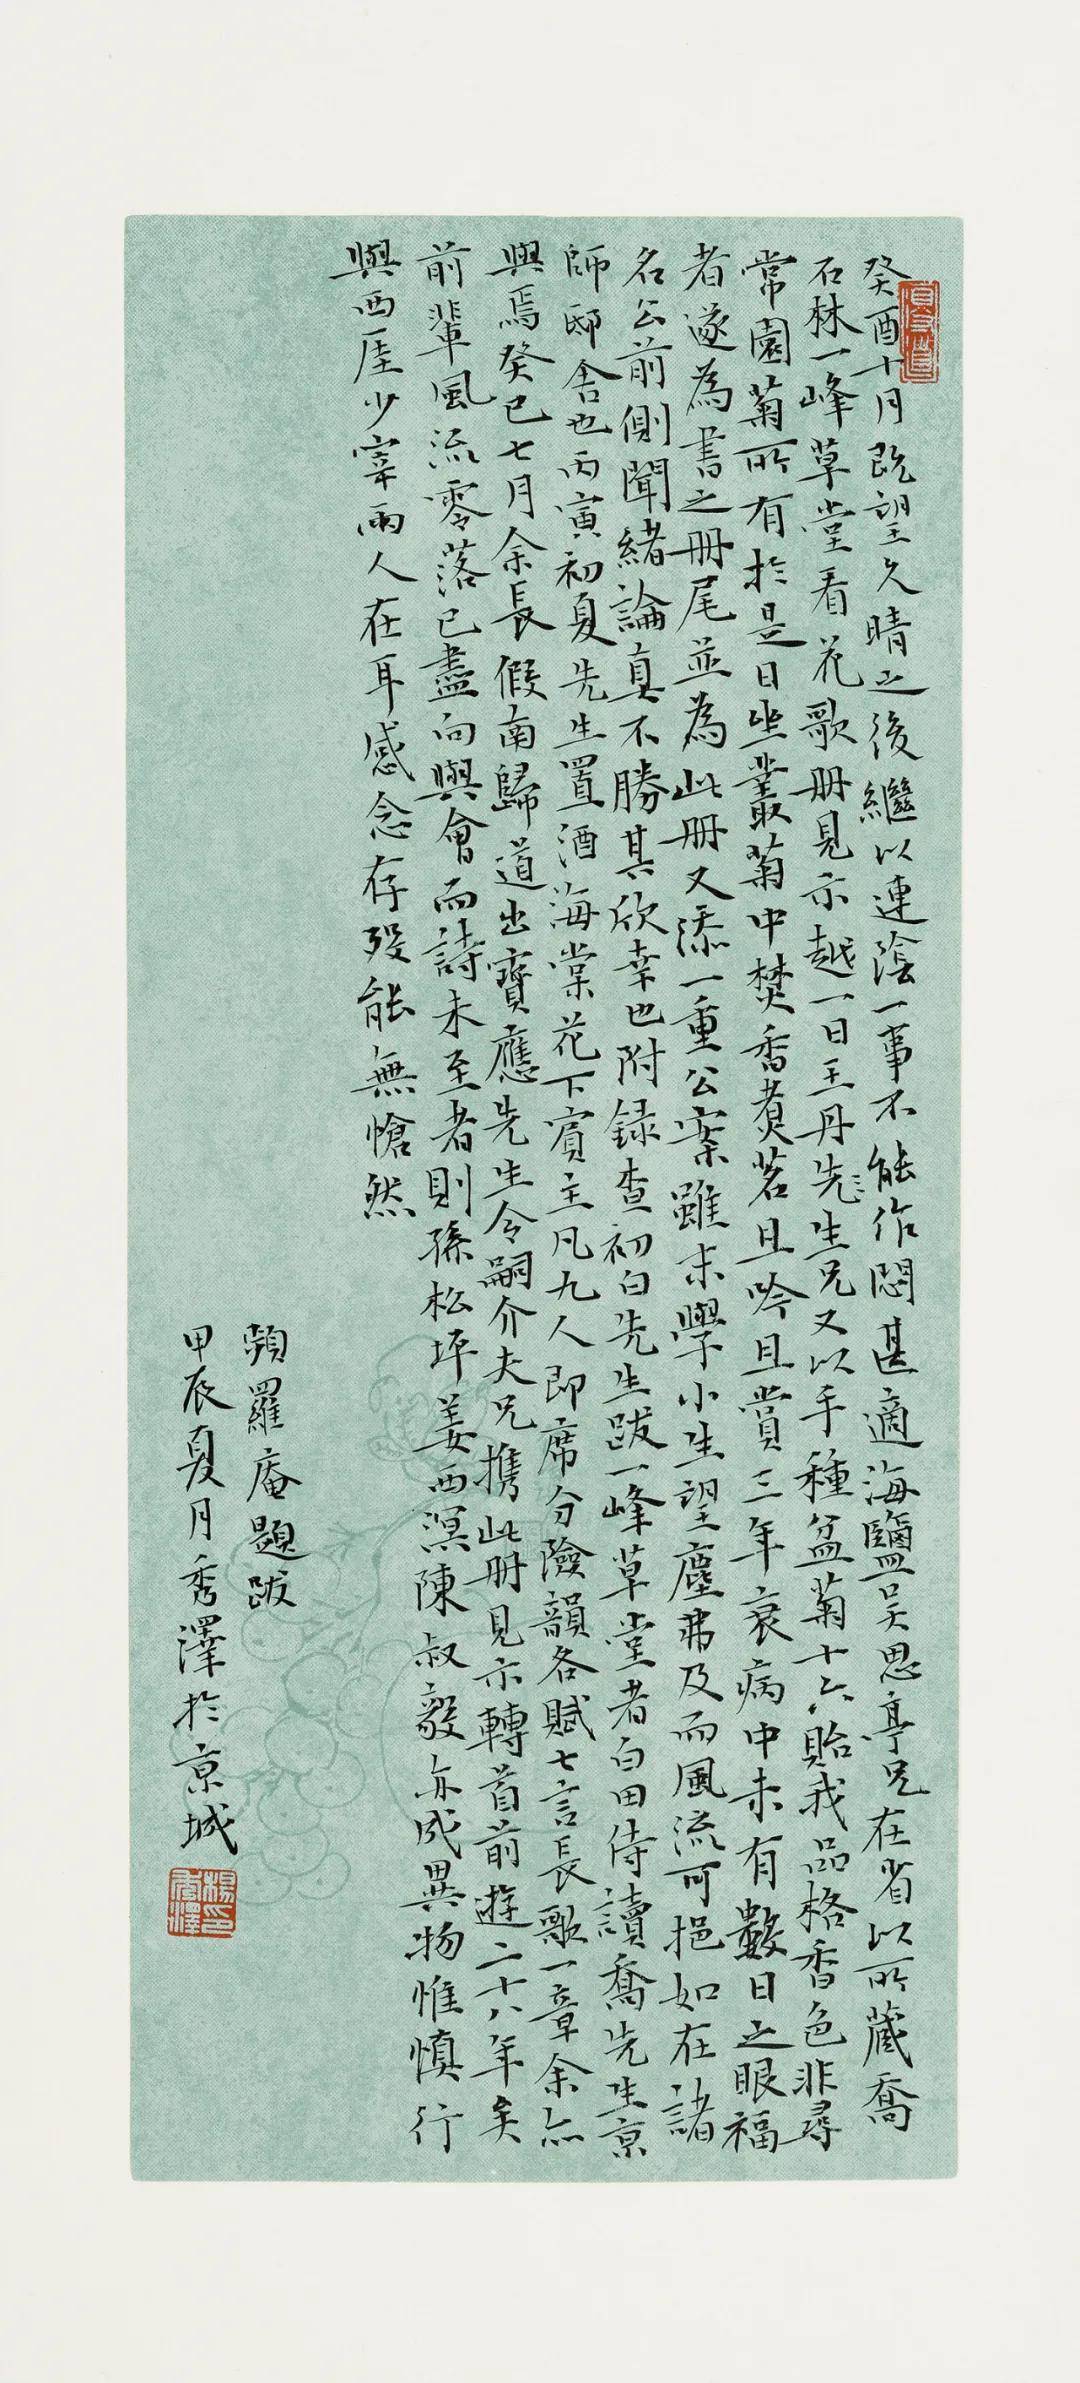 癸酉十月既望久晴之後繼以連陰一事不能作悶甚適海鹽吴思亭兄在省以所藏喬
石林一峰草堂看花歌册見示越一日王丹先生兄又以手種盆菊十六貽我品格香色非尋
常園菊所有於是日坐叢菊中焚香煮茗且吟且賞三年衰病中未有數日之眼福
者遂為書之册尾並為此册又添一重公案雖末學小生望塵弗及而風流可挹如在諸
名公前側聞緒論真不勝其欣幸也附録查初白先生跋一峰草堂者白田侍讀喬先生京
師邸舍也丙寅初夏先生置酒海棠花下賓主凡九人即席分險韻各賦七言長歌一章余亦
與焉癸巳七月余長假南歸道出寶應先生令嗣介夫兄携此册見示轉首前遊二十八年矣
前輩風流零落已盡向與會而詩未至者則孫松坪姜西溟陳叔毅亦成異物惟慎行
與西厓少宰兩人在耳感念存殁能無愴然
頻羅庵題跋
甲辰夏月秀澤於京城
楊秀澤印